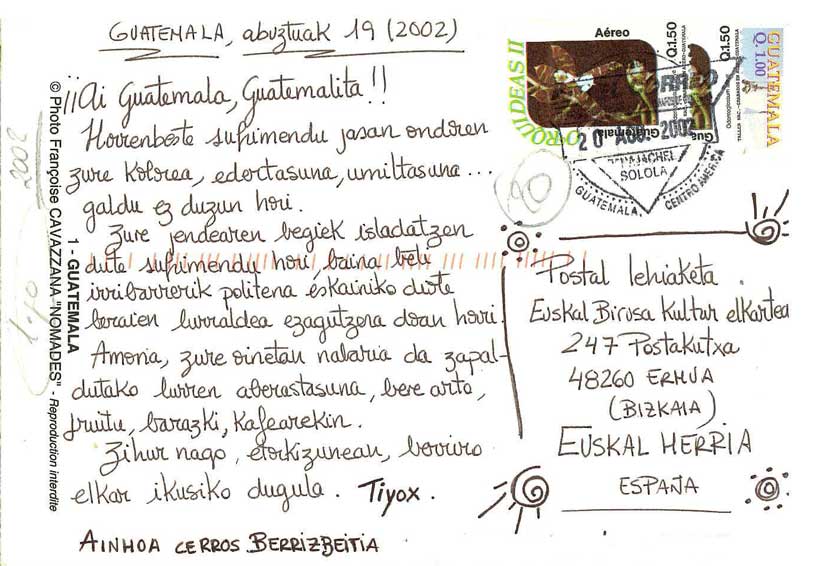 GUATEMALA, abuztuak 19 (2002)
¡¡Ai Guatemala, Guatemalita!!
Horrenbeste sufrimendu jasan ondoren
zure kolorea, edertasuna, umiltasuna...
galdu ez duzun hori.
Zure jendearen begiek isladatzen
dute sufrimendu hori, baina beti
irribarrerik politena eskainiko diote
beraien lurraldea ezagutzera doan horri.
Ameria, zure oinetan nabaria da zapal-
dutako lurren aberastasuna, bere arto,
fruitu, barazki, kafearekin.
Zihur nago, etorkizunean, berriro
elkar ikusiko dugula. Tiyox.
AINHOA CERROS BERRIZBEITIA
1 - GUATEMALA
© Photo Françoise CAVAZZANA "NOMADES" - Reproduction interdite
2003
ORQUIDEAS II
Aéreo
Q.1.50
Guatemala
Q.1.50
GUATEMALA
Q. 1.00
20 AGO. 2002
PANAJACHEL
SOLOLA
GUATEMALA,
CENTRO AMERICA
Postal lehiaketa.
Euskal Birusa Kultur elkartea
247 Postakutxa
48260 ERMUA
(BIZKAIA)
EUSKAL HERRIA
ESPAÑA